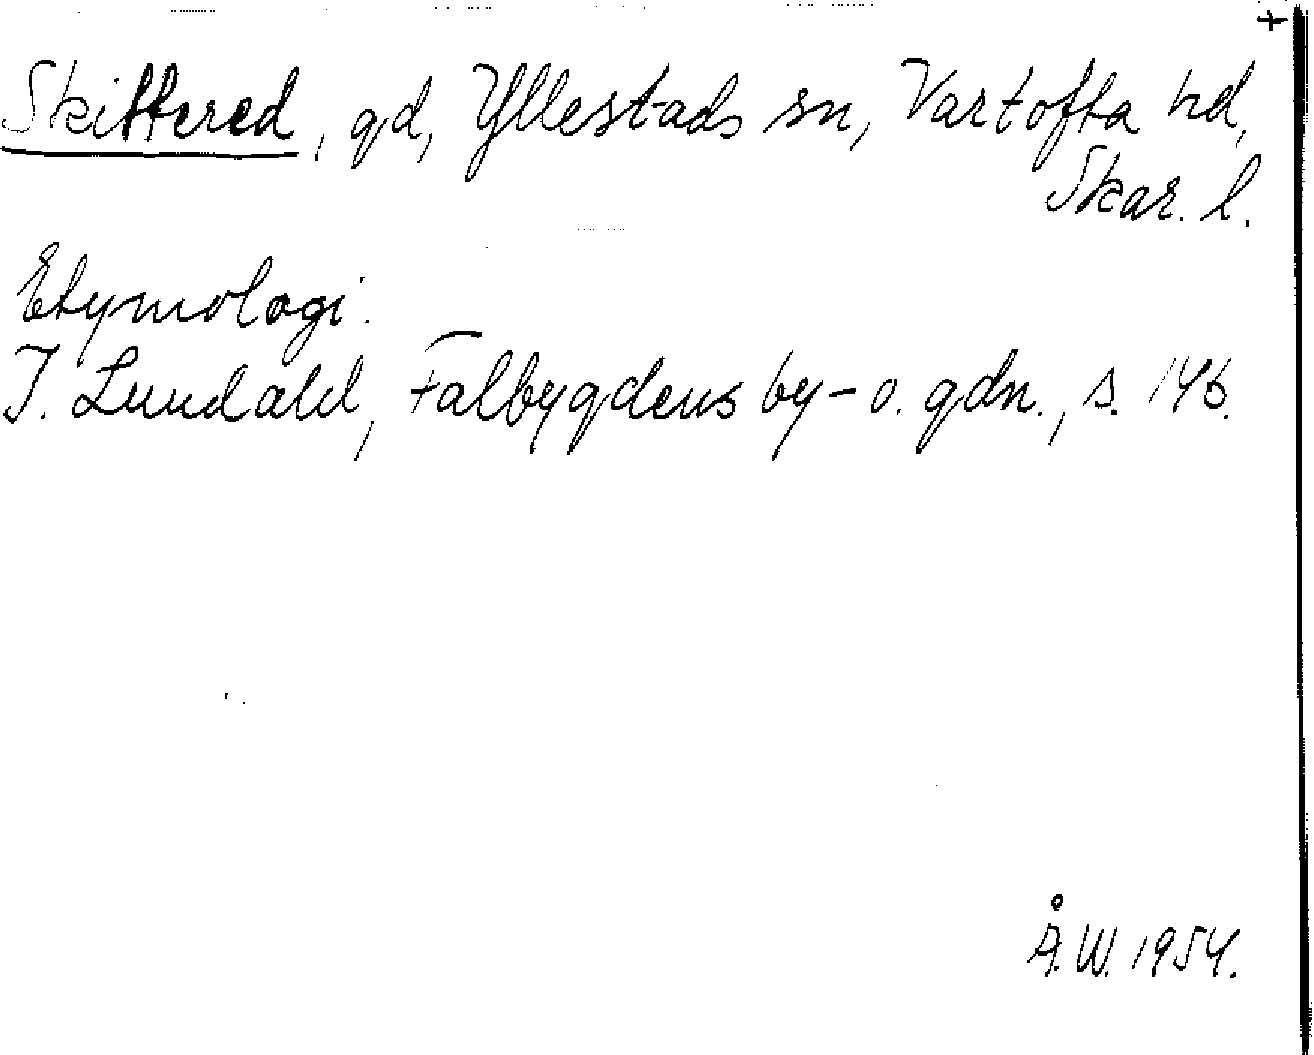 +
Skittered, gd, Yllestads sn, Vartofta hd,
Skar. l.
Etymologi.
I. Lundahl, Falbygdens by- o. gdn., s. 146.
Å.W. 1954.